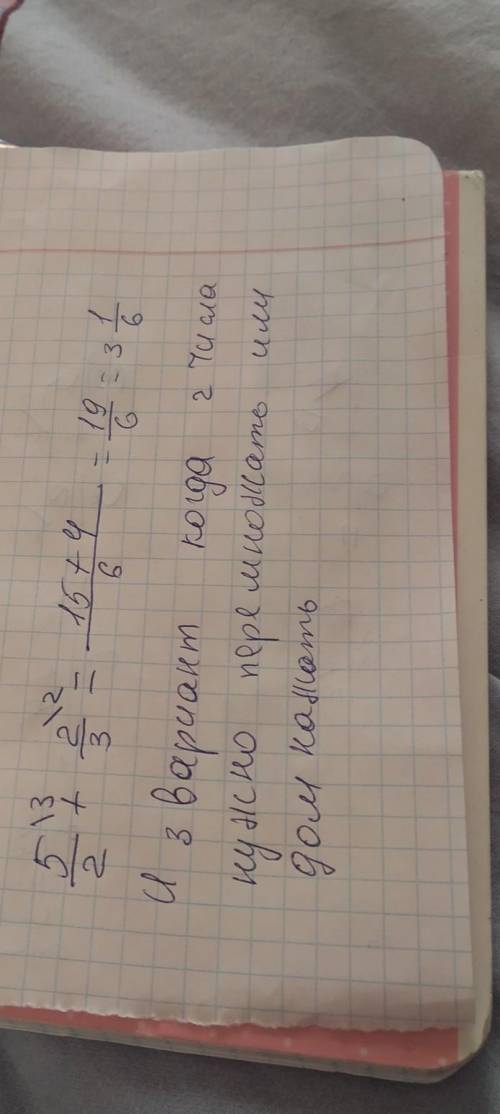 5/2 \3 + 2/3 \2 = 15+4/6 = 19/6 = 3 1/6
и 3 вариант когда 2 числа
нужно перемножать или
домножать